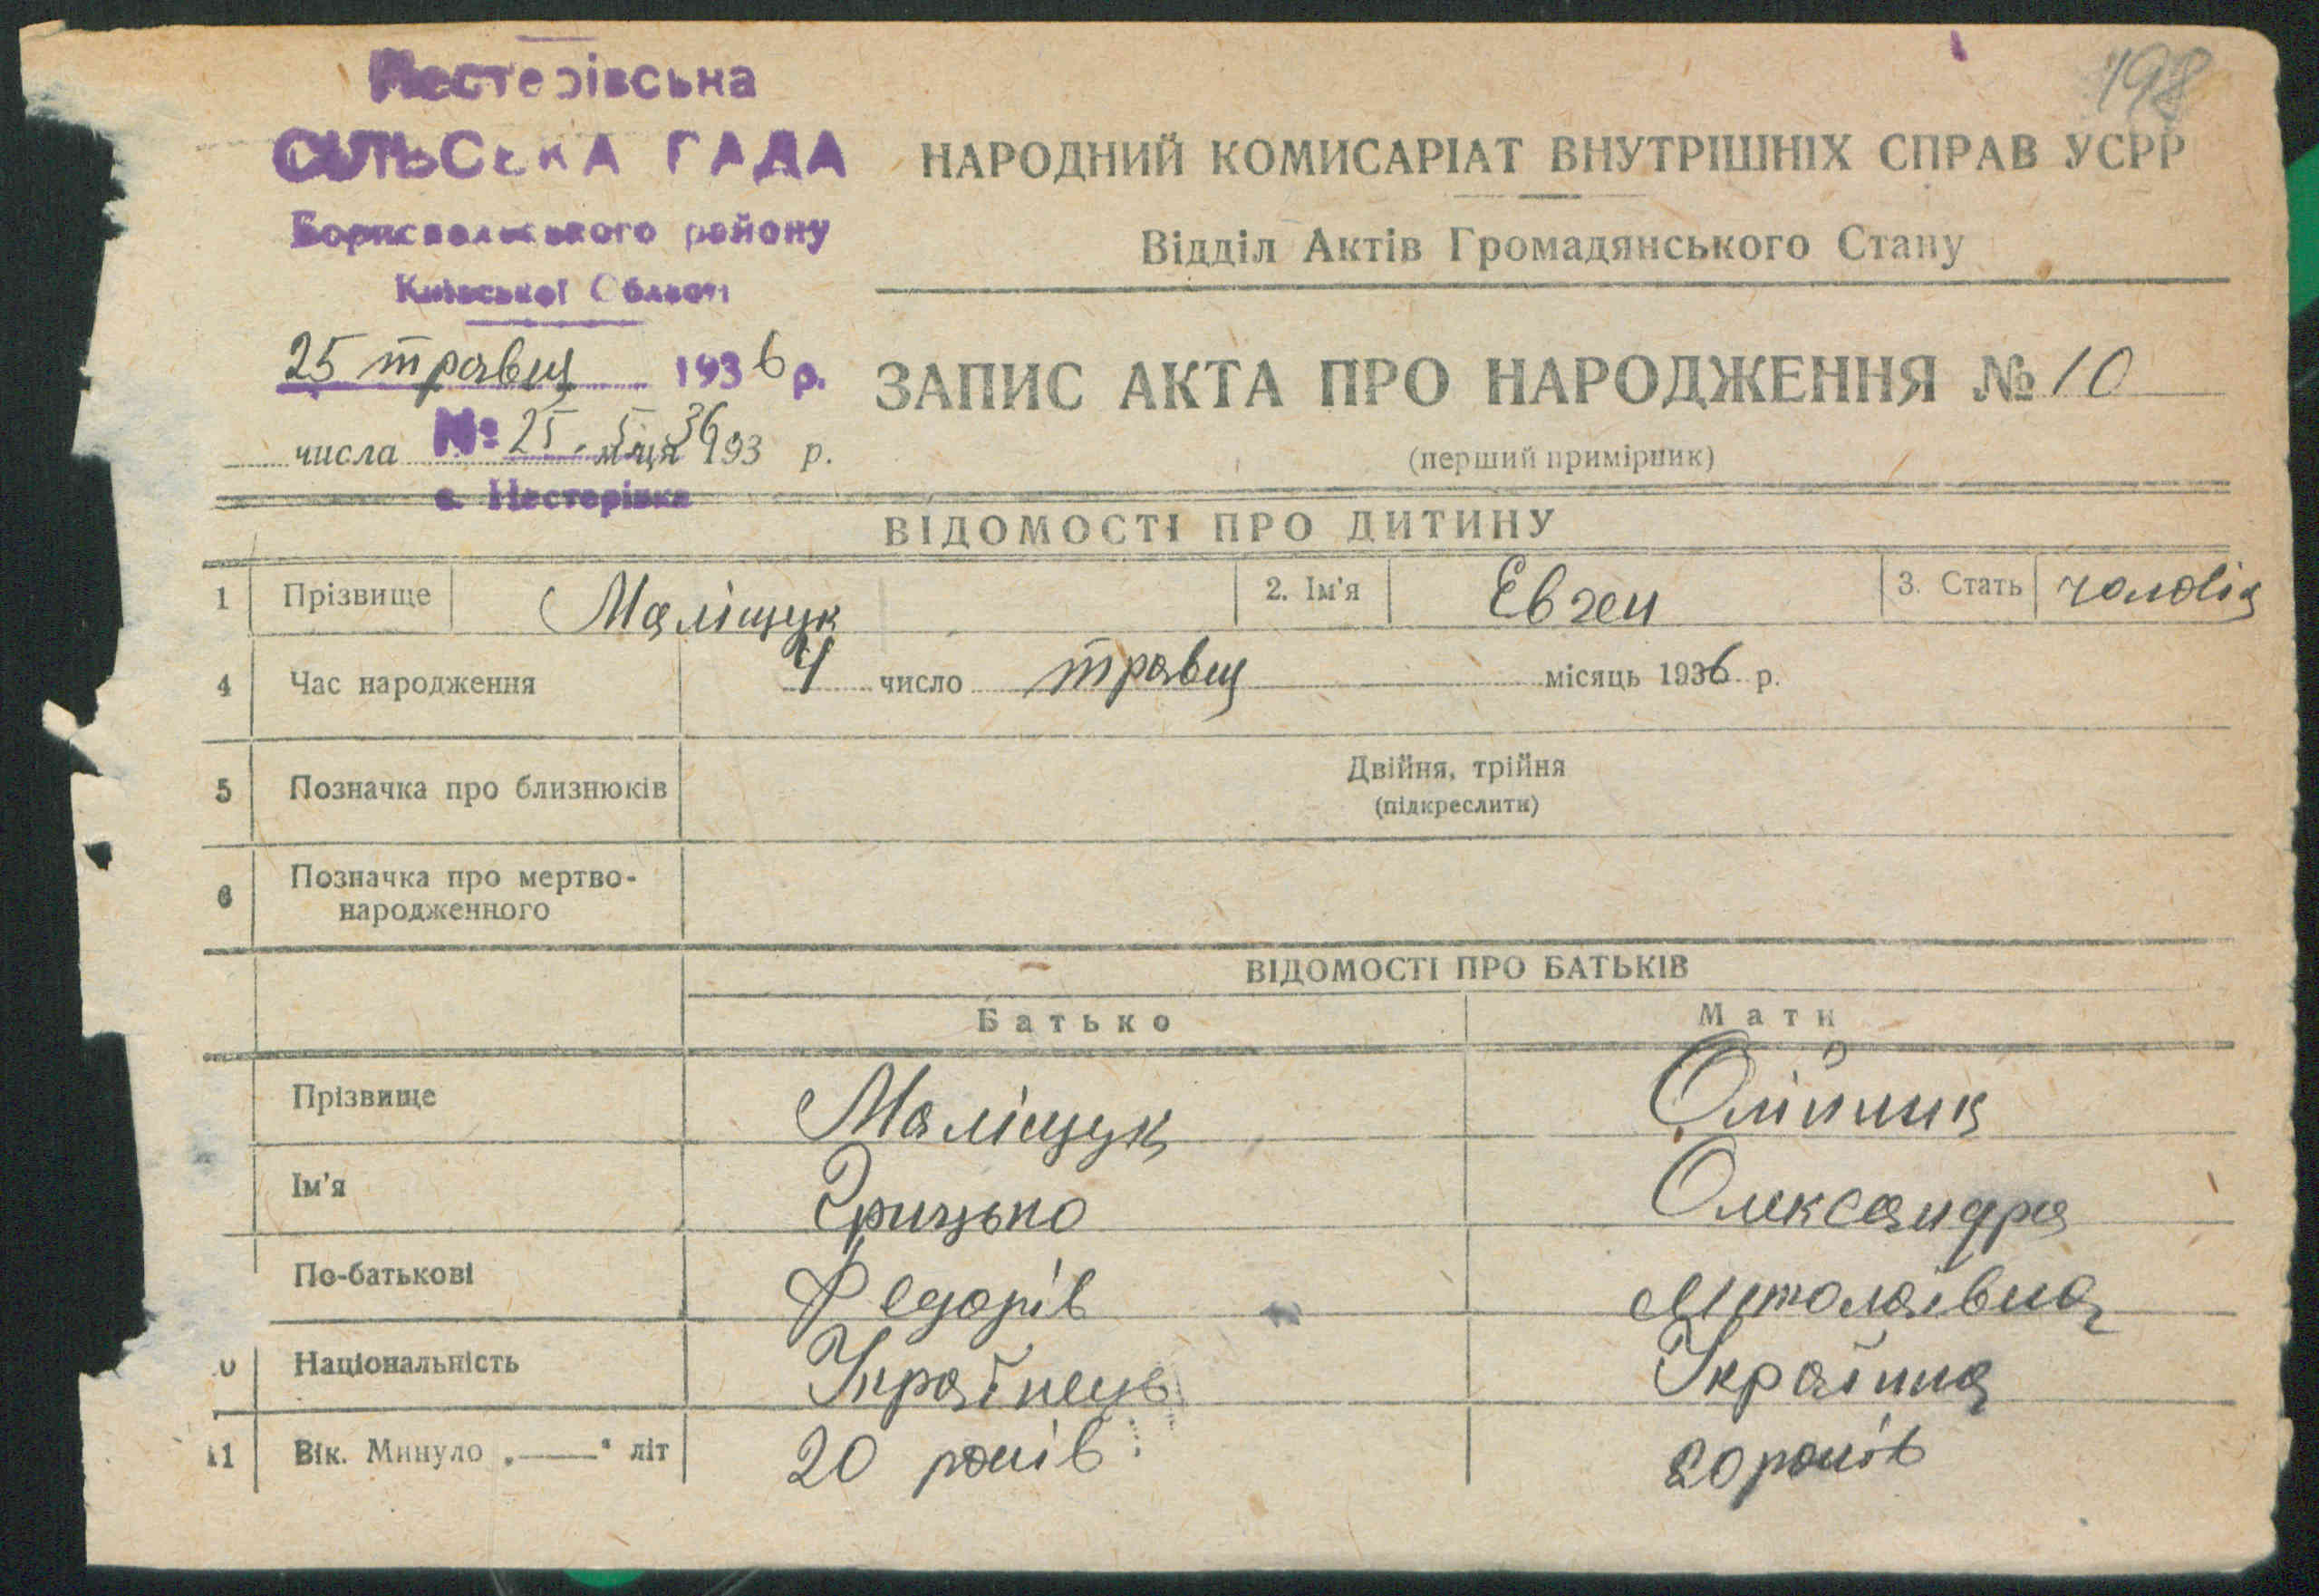 198
Нестерівська
СІЛЬСЬКА РАДА
району
Київської Області
25 травця 1936 р.
числа № 25. 5 м-ця 36 193 р.
с. Нестерівка
НАРОДНИЙ КОМИСАРІАТ ВНУТРІШНІХ СПРАВ УСРР
Відділ Актів Громадянського Стану
ЗАПИС АКТА ПРО НАРОДЖЕННЯ № 10
(перший примірник)
ВІДОМОСТІ ПРО ДИТИНУ
1 Прізвище Маліщук 2. Ім'я Евген 3. Стать чоловіч
4 Час народження 4 число травця місяць 1936 р.
5 Позначка про близнюків Двійня, трійня
(підкреслити)
6 Позначка про мертво-
народженного
ВІДОМОСТІ ПРО БАТЬКІВ
Батько Мати
Прізвище Маліщук Олійник
Ім'я Грицько Олександра
По-батькові Федорів
0 Національність Українець Українка
11 Вік. Минуло „——“ літ 20 років 20 років